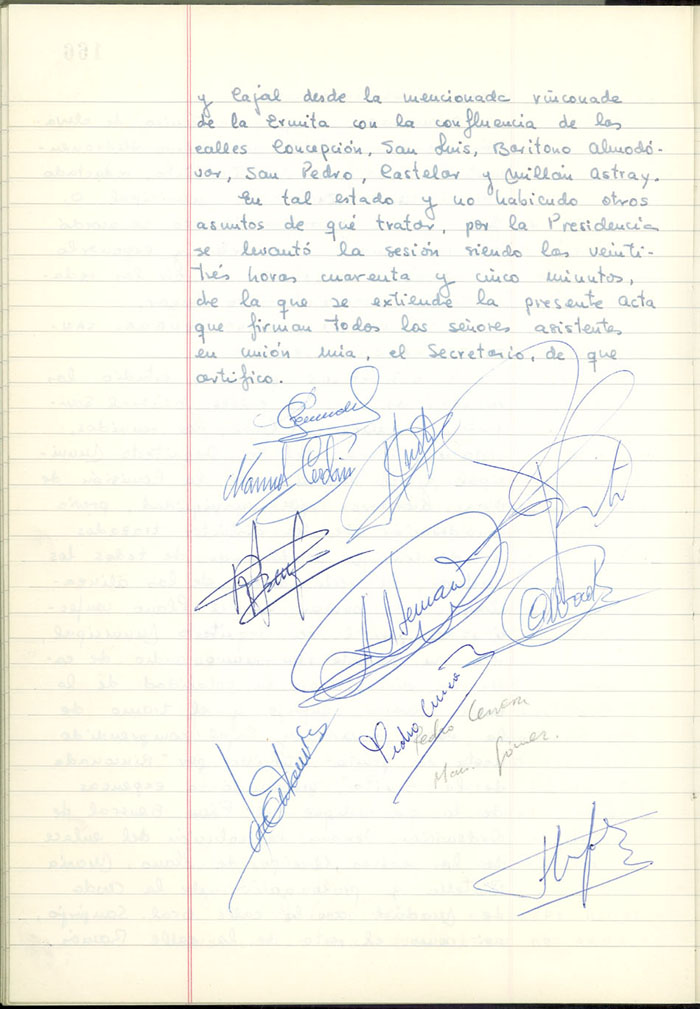 y Cajal desde la mencionada rinconada
de la Ermita con la confluencia de las
calles Concepción, San Luis, Barítono Almodó-
var, San Pedro, Castelar y Millán Astray.
En tal estado y no habiendo otros
asuntos de qué tratar, por la Presidencia
se levantó la sesión siendo las veinti-
trés horas cuarenta y cinco minutos,
de la que se extiende la presente acta
que firman todos los señores asistentes
en unión mía, el Secretario, de que
certifico.
Manuel
Pedro
Pedro
Gómez.